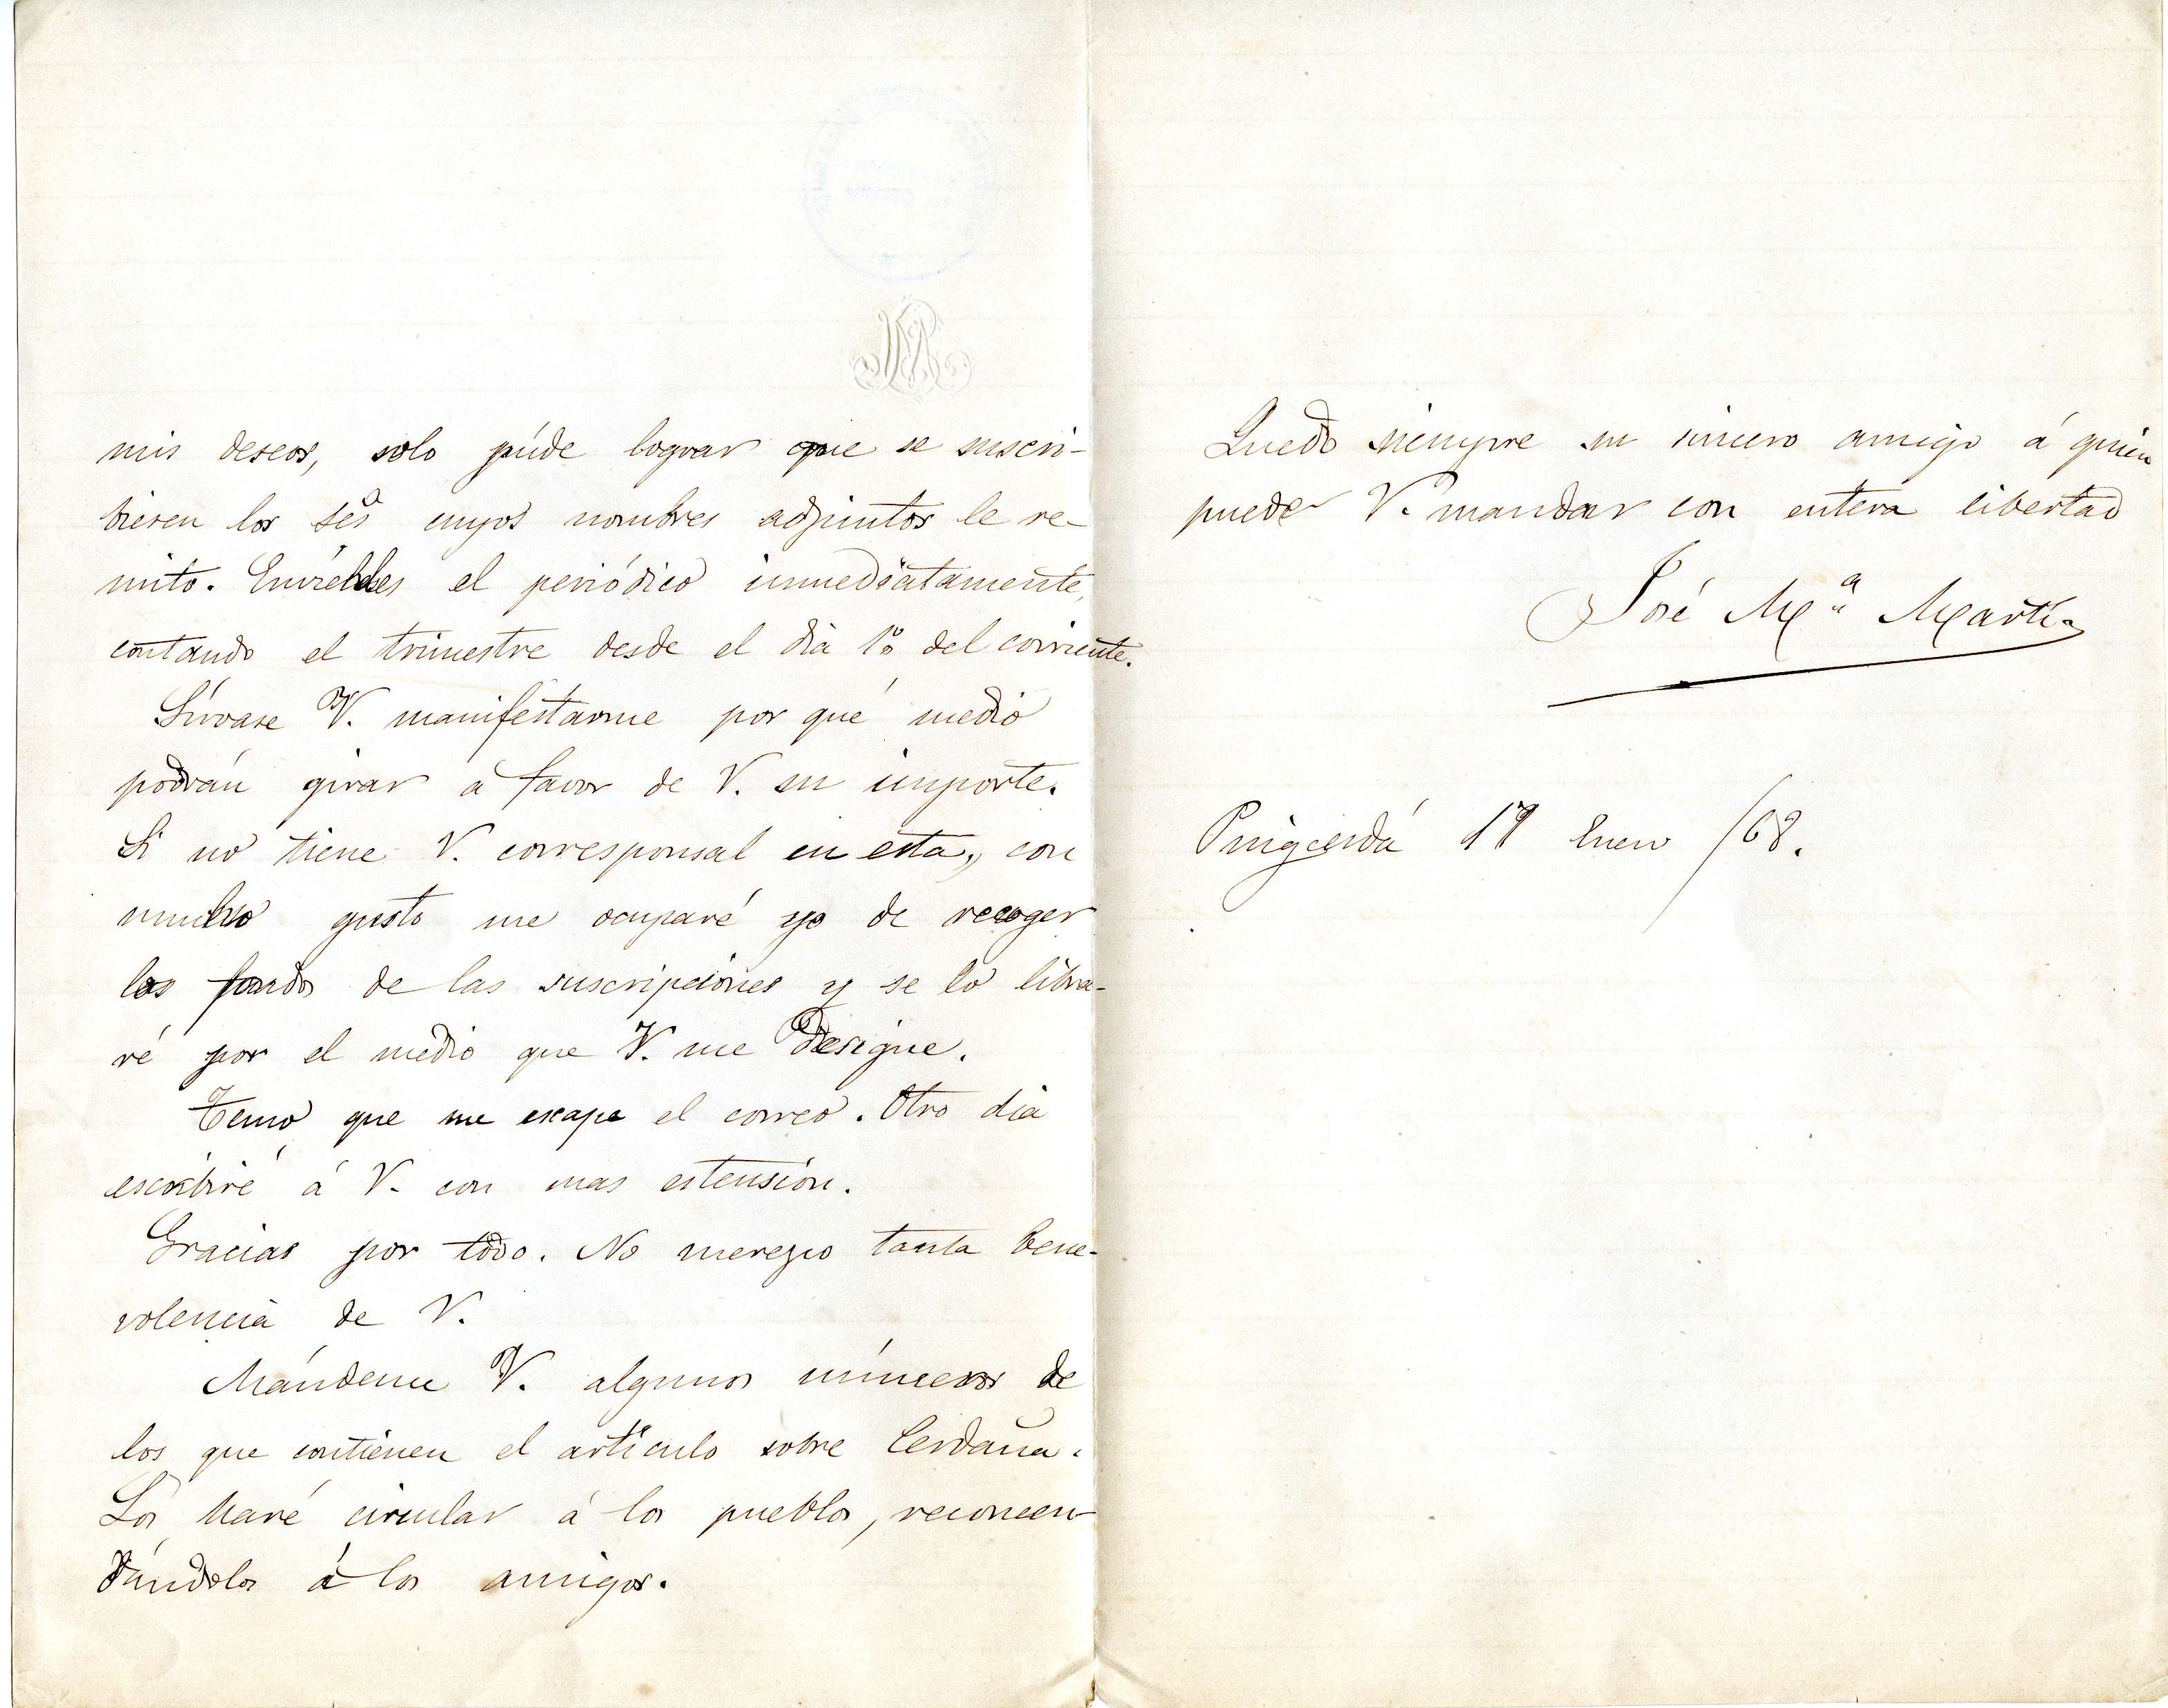 mis deseos, solo púde lograr que se suscri-
biesen los Sẽs cuyos nombres adjuntos le re-
mito. Envíeles el periódico inmediatamente,
contando el trimestre desde el dia 1º del corriente.
Sírvase V. manifestarme por qué medio
podrán girar á favor de V. su importe.
Si no tiene V. corresponsal en esta, con
mucho gusto me ocuparé yo de recoger
los fondos de las suscripciones y se lo libra-
ré por el medio que V. me designe.
Temo que me escape el correo. Otro dia
escribiré á V. con mas estension.
Gracias por todo. No merezco tanta bene-
volencia de V.
Mándeme V. algunos números de
los que contienen el artículo sobre Cerdaña.
Los haré circular á los pueblos, recomen-
dándolos á los amigos.
Quedo siempre su sincero amigo á quien
puede V. mandar con entera libertad
José Mª Martí
Puigcerdá 17 Enero /68.